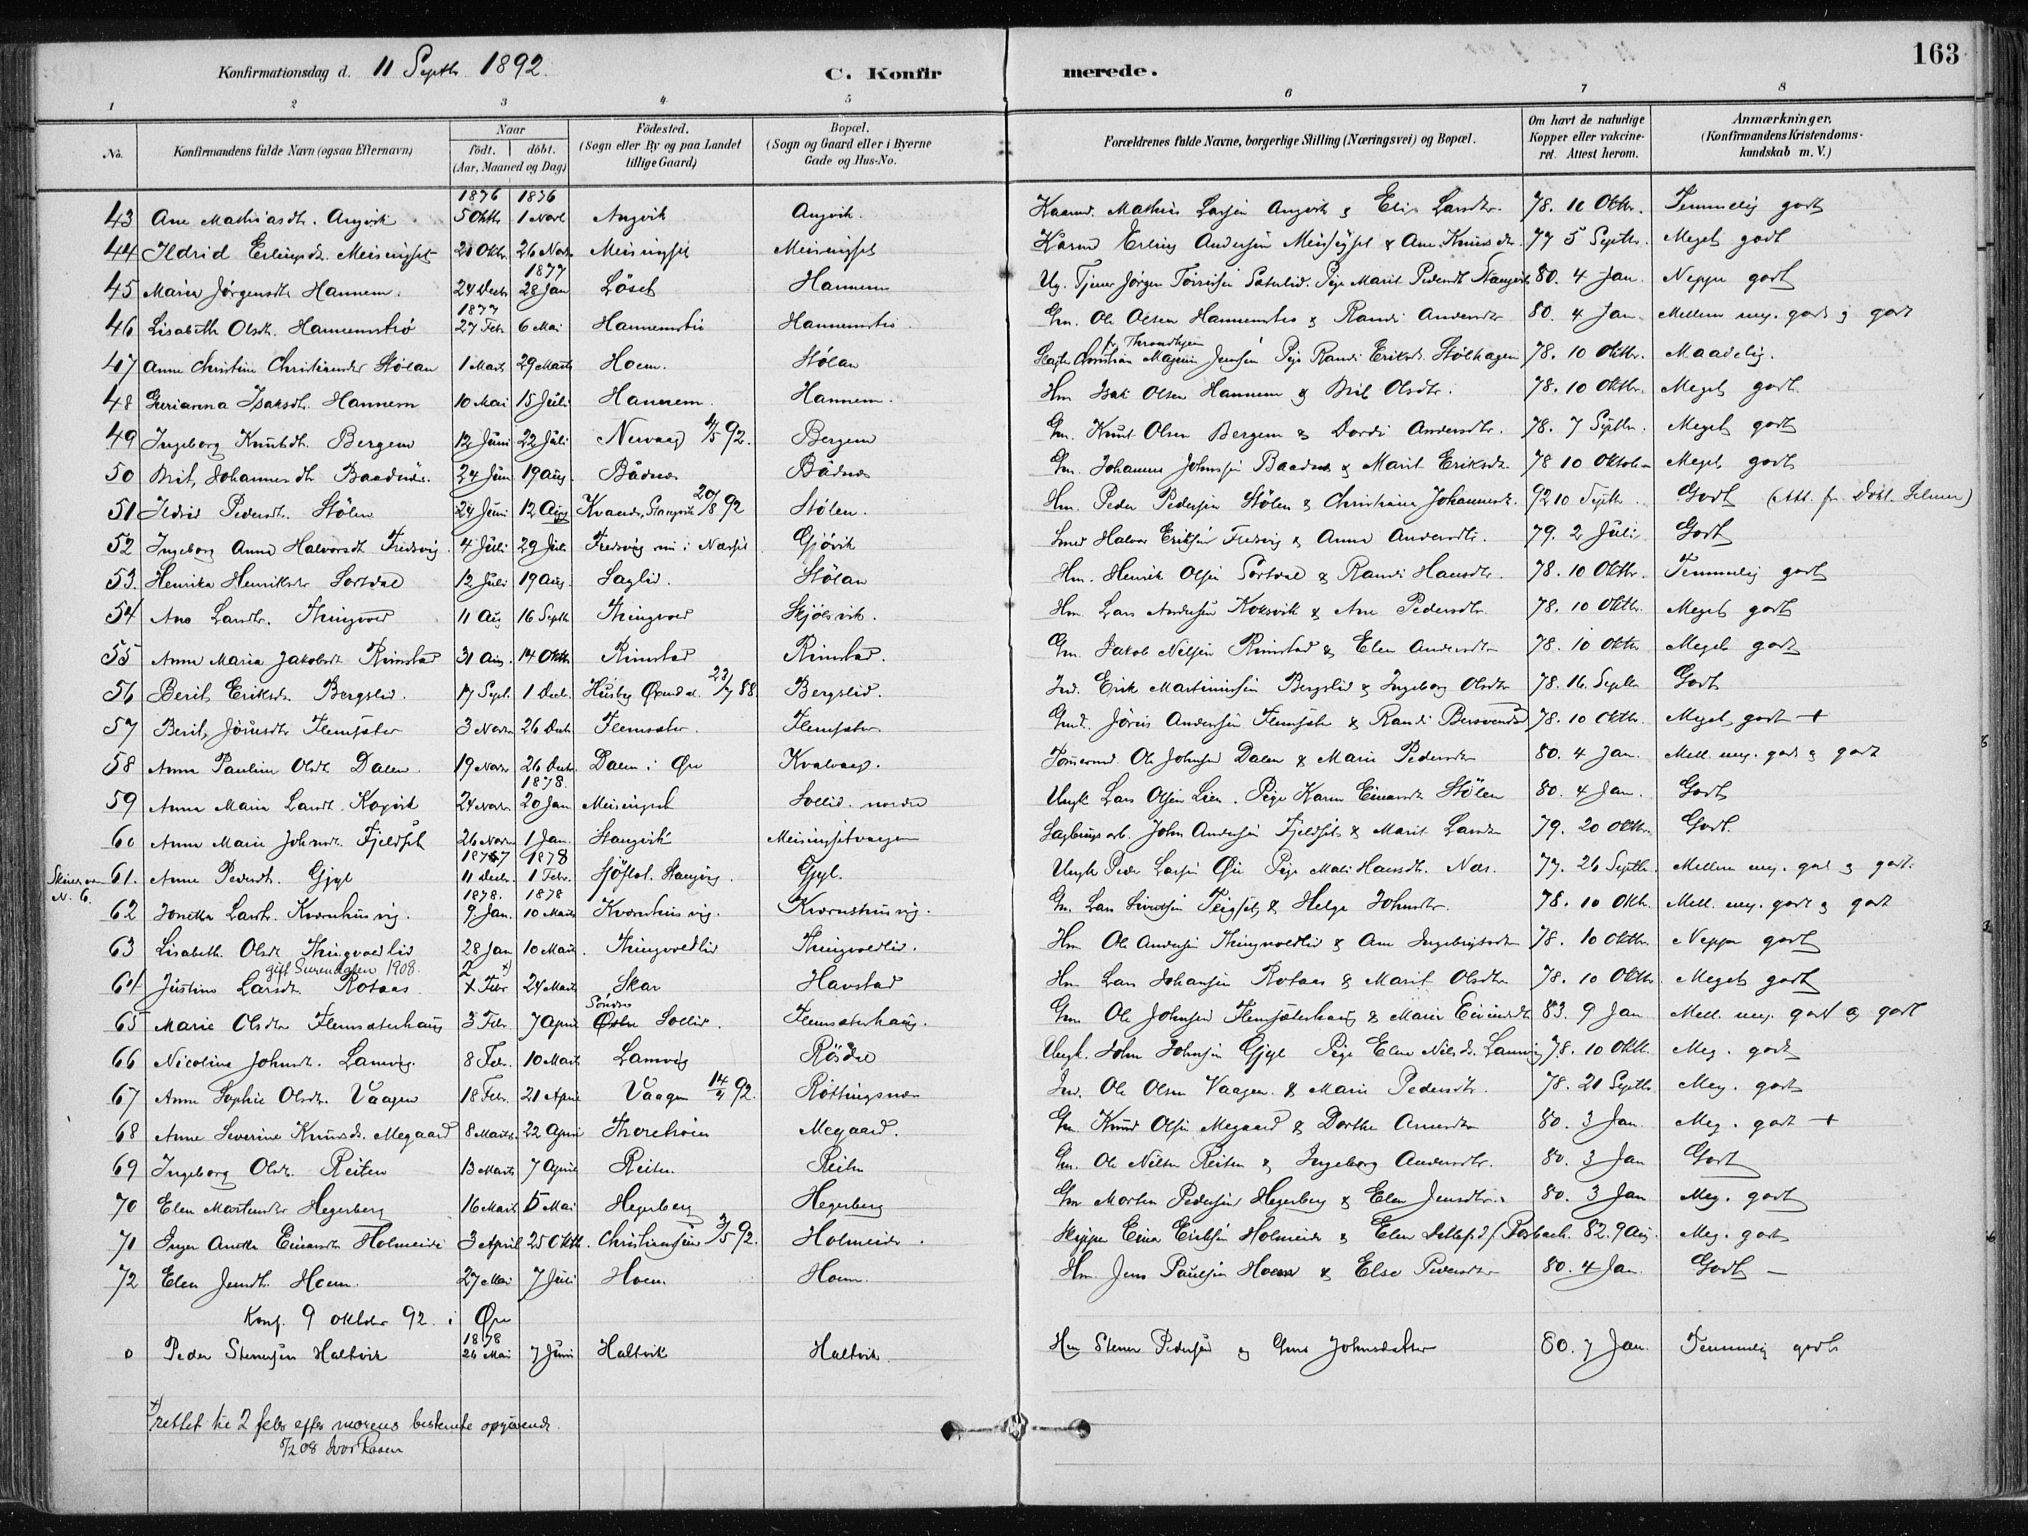 Konfirmationsdag d. 11 Septbr 1892.
C. Konfirmerede.
163
1 2 3 4 5 6 7 8
No. Konfirmandens fulde Navn (ogsaa Efternavn) Naar födt. döbt. (Aar, Maaned og Dag) Födested. (Sogn eller By og paa Landet tillige Gaard) Bopæl. (Sogn og Gaard eller i Byerne Gade og Hus-No. Forældrenes fulde Navne, borgerlige Stilling (Næringsvei) og Bopæl. Om havt de naturlige Kopper eller vakcineret. Attest herom. Anmærkninger, (Konfirmandens Kristendomskundskab m. V.)
1876 1876
43 Ane Mathiasdtr. Angvik 5 Oktbr 1 Novbr Angvik Angvik. Kaarmd. Mathias Larsen Angvik & Elis Larsdtr. 78. 10 Oktbr. Temmelig godt
44 Ildrid Erlingsdtr. Meisingset 20 Oktbr 26 Novbr Meisingset Meisingset Kaarmd Erling Andersen Meisingset & Ane Knudsdtr. 77 5 Septbr. Meget godt
1877
45 Marie Jørgensdtr Hannem. 24 Decbr 28 Jan Löset Hannem Ug. Tjener Jörgen Pige Marit Pedersdtr Stangvik 80. 4 Jan. Neppe godt
1877
46 Lisabeth Olsdtr. Hannemstrø 27 Febr 6 Mai Hannemstrø Hannemstrø. Gm. Ole Olsen Hannemstrø & Randi Andersdtr 80. 4 Jan. Mellem meg. godt og godt
fr Throndhjem
47 Anne Christine Christiansdtr Stølan 1 Marts 29 Marts Hoem. Stølan Christian Magnus Jensen Pige Randi Eriksdtr. Stølhagen 78. 10 Oktbr. Maadelig.
48 Gurianna Isaksdtr. Hannem 10 Mai 15 Juli Hannem. Hannem. Hm Isak Olsen Hannem & Brit Olsdtr. 78. 10 Oktbr. Meget godt.
49 Ingeborg Knutsdtr. Bergem 12 Juni 22 Juli Nervaag 4/5 92. Bergem Gm. Knut Olsen Bergem & Dordi Andersdtr. 78. 7 Septbr. Meget godt
50 Brit Johannesdtr Baadnes. 24 Juni 19 Aug. Bådnes Bådnes Gm. Johannes Johnsen Baadnes & Marit Eriksdtr 78 10 Oktober Meget godt
51 Ildrid Pedersdtr. Stölen 24 Juni 12 Aug Kvande, Stangvik 20/8 92 Stölen. Hm. Peder Pedersen Stölen & Christiane Johannesdtr. 92 10 Septbr Godt (Att. fr. Dobt. )
52 Ingeborg Anna Halvorsdtr Fredsvig 4 Juli 29 Juli Fredsvig nu i Næsset Gjövik Smed Halvor Eriksen Fredsvig & Anne Andersdtr. 79. 2 Juli Godt
53. Henrika Henriksdtr Sortdal 12 Juli 19 Aug. Saglid. Stölan Hm. Henrik Olsen Sortdal & Randi Hansdtr. 78. 10 Oktbr. Temmelig godt
54 Ane Larsdtr. Thingvold 11 Aug 16 Septbr Thingvold Skjölsvik. Hm. Lars Andersen Koksvik & Ane Pedersdtr. 78. 10 Oktbr. Meget godt
55 Anne Maria Jakobsdt Rimstad 31 Aug. 14 Oktbr Rimstad Rimstad. Gm. Jakob Nilsen Rimstad & Elen Andersdtr 78. 10 Oktbr Meget godt
56 Berit Eriksdtr Bergslid. 17 Sept. 1 Decb. Husby, Örendal 23/7 88. Bergslid. Ind. Erik Martinussen Bergslid & Ingeborg Olsdtr 78. 16. Septbr Godt
57 Berit Jörusdtr Flemsæter 3 Novbr 26 Decbr Flemsæter. Flemsæter Gmd. Jörus Andersen Flemsæter & Randi Bersvendsd 78. 10 Oktbr. Meget godt +
58 Anne Pauline Olsdt. Dalen 19 Novbr 26 Decbr Dalen i Öre Kvalvaag. Tömmermd Ole Johnsen Dalen & Marie Pedersdtr 80. 4 Jan. Mell. meg. godt og godt
1878.
59 Anne Marie Larsdt. Kogvik 24 Novbr 20 Jan Meisingset Sollid. nordre Ungk. Lars Olsen Lien. Pige Karen Einarsdtr Stölen 80. 4 Jan. Godt
60 Anne Marie Johnsdtr. Fjeldset 26 Novbr 1 Jan. Stangvik Meisingsetvaagen Sagbrugsarb. John Andersen Fjeldset & Marit Larsdtr 79. 20 Oktbr Godt.
1877 1878
Skives ved N. 6.
61. Anne Pedersdt. Gjyl 11 Decbr. 1 Febr. Sjöflot. Stangvig. Gjyl. Ungk Peder Larsen Öie Pige Mali Hansdtr. Næs. 77. 26 Septbr. Mellem meg. godt og godt.
1878. 1878
62 Jonetta Larsdtr. Kvernhusvig. 9 Jan. 10 Marts Kvernhusvig. Kvernshusvig. Gm. Lars Sivertsen Teigset & Helge Johnsdtr. 78. 10 Oktbr. Mell. meg. godt og godt
63 Lisabeth Olsdtr Thingvoldlid 28 Jan 10 Marts. Thingvoldlid Thingvoldlid. Hm Ole Andersen Thingvoldlid & Ane Ingebrigtsdtr 78. 10 Oktbr. Neppe godt
gift Surendalen 1908. 2 x)
64 Justine Larsdt. Rotaas x Febr 24 Marts Skar Havstad Hm Lars Johansen Rotaas & Marit Olsdtr 78. 10 Oktbr Meget godt
Söndre
65 Marie Olsdtr Flemsæterhaug 3 Febr. 7 April Östre Sollid. Flemsæterhaug. Gm. Ole Johnsen Flemsæterhaug & Marie Einarsdtr 83. 9 Jan Mell. meg. godt og godt
66 Nicoline Johnsdt. Lamvig. 8 Febr. 10 Marts Lamvig Rödve Ungk. John Johnsen Gjyl Pige Elen Nilsdtr. Lamvig 78. 10 Oktbr. Meg. godt
67 Anne Sophie Olsdtr. Vaagen 18 Febr. 21 April Vaagen 14/4 92. Röttingsnæs Ind. Ole Olsen Vaagen & Marie Pedersdtr. 78. 21 Septbr Meg. godt
68 Anne Severine Knudsd. Megaard 8 Marts. 22 April Thorehöien Megaard. Gm. Knud Olsen Megaard & Dorthe Arnesdtr 80. 3 Jan. Meg. godt +
69 Ingeborg Olsdtr. Reiten 13 Marts 7 April Reiten Reiten Gm. Ole Nilsen Reiten & Ingeborg Andersdtr. 80. 3 Jan Godt
70 Elen Mortensdtr Hegerberg 16 Marts 5 Mai Hegerberg Hegerberg Gm Morten Pedersen Hegerberg & Elen Jensdtr. 80. 3 Jan Meg. godt
71 Inger Anette Einarsdtr Holmeide 3 April 25 Oktbr. Christiansund 3/5 92. Holmeide. Skipper Einar Eriksen Holmeide & Elen Detlefsd. 82. 9 Aug. Meg. godt
72 Elen Jensdt. Hoem. 27 Mai 7 Juli Hoem Hoem. Hm. Jens Paulsen Hoem & Else Pedersdtr 80. 4 Jan. Godt —
Konf. 9 oktober 92. i Öre
1878
0 Peder Stenersen Haltvik 26 Mai 7 Juni Haltvik Haltvik. Hm Stener Pedersen og Johnsdatter 80. 7 Jan. Temmelig godt
x) rettet til 2 febr efter morens bestemte opgivende.
5/2 08 Ivar Raaen